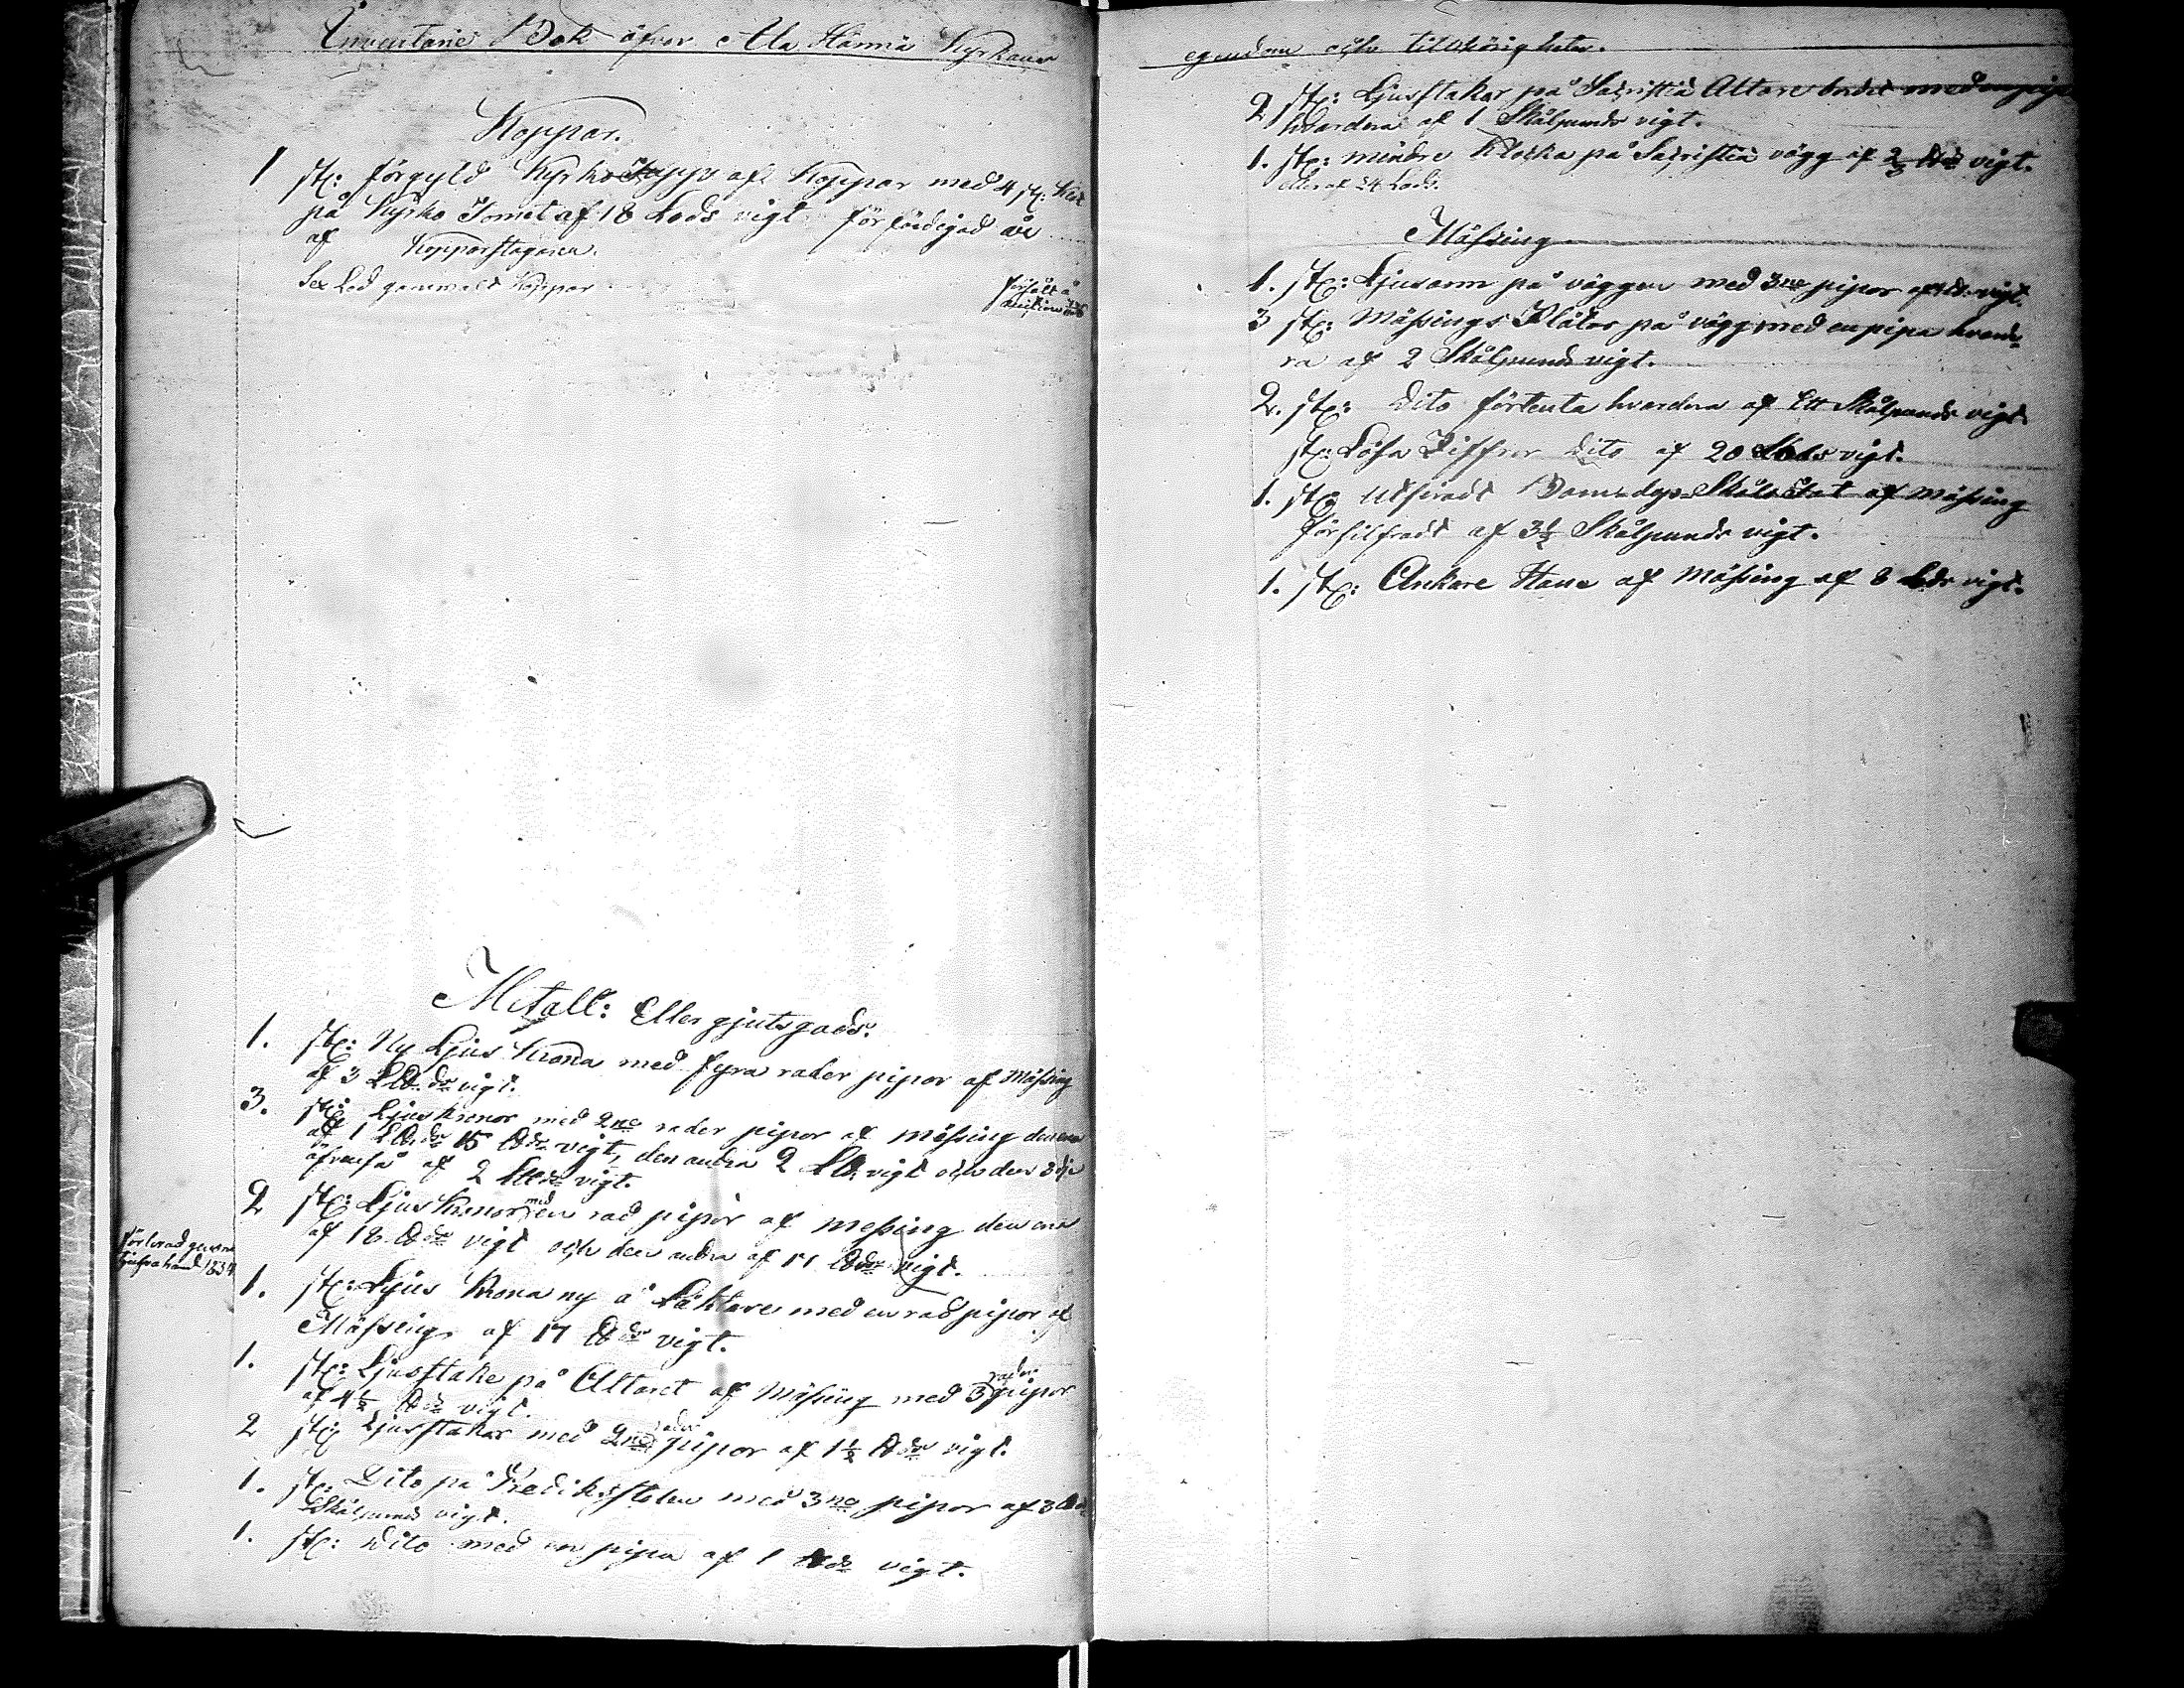 Inventarie Bok öfver Ala Härmä Kyrkans
Koppar.
1 st: förgyld Kyrko Tupp af Koppar med 4 st:
på Kyrko Tornet af 18 Lods vigt förfärdigad åre
af Kopparslagaren
Sex Lod gammalt Koppar
försåld å
auktion
Metall: Eller gjutgods:
1. st: Ny Ljus Krona med fyra rader pipor af Mässing
af 3 L℔ds vigt.
3. st: Ljuskronor med 2ne rader pipor af mässing den ena
af 1 L℔ds 15 ℔ds vigt, den andra 2 L℔ vigt och den 3dje
äfvenså af 2 L℔ds vigt.
2 st: Ljus Kronor med en rad pipor af messing den ena
af 18 ℔ds vigt och den andra af 11 ℔ds vigt.
förlorad genom
tjufvahand 1834
1. st: Ljus Krona ny å Läktare med en rad pipor af
Mässing af 17 ℔ds vigt.
1. st: Ljusstake på Altaret af Mässing med 3 rader pipor
af 4½ ℔ds vigt.
2 st: Ljusstakar med 2ne rader pipor af 1½ ℔ds vigt.
1. st: Dito på Predikstolen med 3ne pipor af 3
Skålpunds vigt.
1. st: Dito med en pipa af 1 ℔ds vigt.
egendom och tillhörigheter.
2 st: Ljusstakar på Sacristiæ Altare med en pipa
hvardera af 1 Skålpunds vigt.
1. st: mindre Klocka på Sacristiæ vägg af ⅔ ℔ds vigt.
eller af 24 Lods.
Mässing
1. st: Ljusarm på väggen med 3ne pipor af vigt.
3 st: Mässings Plåtar på vägg med en pipa hvarde-
ra af 2 Skålpunds vigt.
2. st: Dito förtenta hvardera af Ett Skålpunds vigt
st: Lösa Ziffror Dito af 20 Lods vigt.
1. st: Utsiradt Barndops Skåle Fat af Mässing
försilfradt af 3½ Skålpunds vigt.
1. st: Ankare Hane af Mässing af 8 Lods vigt.